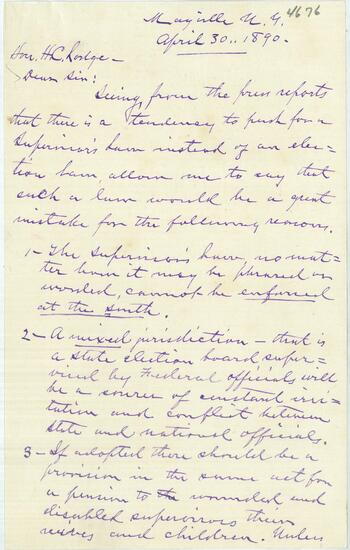 4676
Mayville N.Y.
April 30.. 1890.
Hon. H.C. Lodge –
Dear Sir:
Seeing, from the press reports
that there is a tendency to push for a
Supervisor's law instead of an elec=
tion law, allow me to say that
such a law would be a great
mistake for the following reasons.
1 – The Supervisor's law, no mat=
ter how it may be phrased or
worded, cannot be enforced
at the South.
2 – A mixed jurisdiction – that is
a state election board super=
vised by Federal officials will
be a source of constant irri=
tation and conflict between
state and national officials.
3 – If adopted there should be a
provision in the same act for
a pension to the wounded and
disabled supervisors their
wives and children. Unless